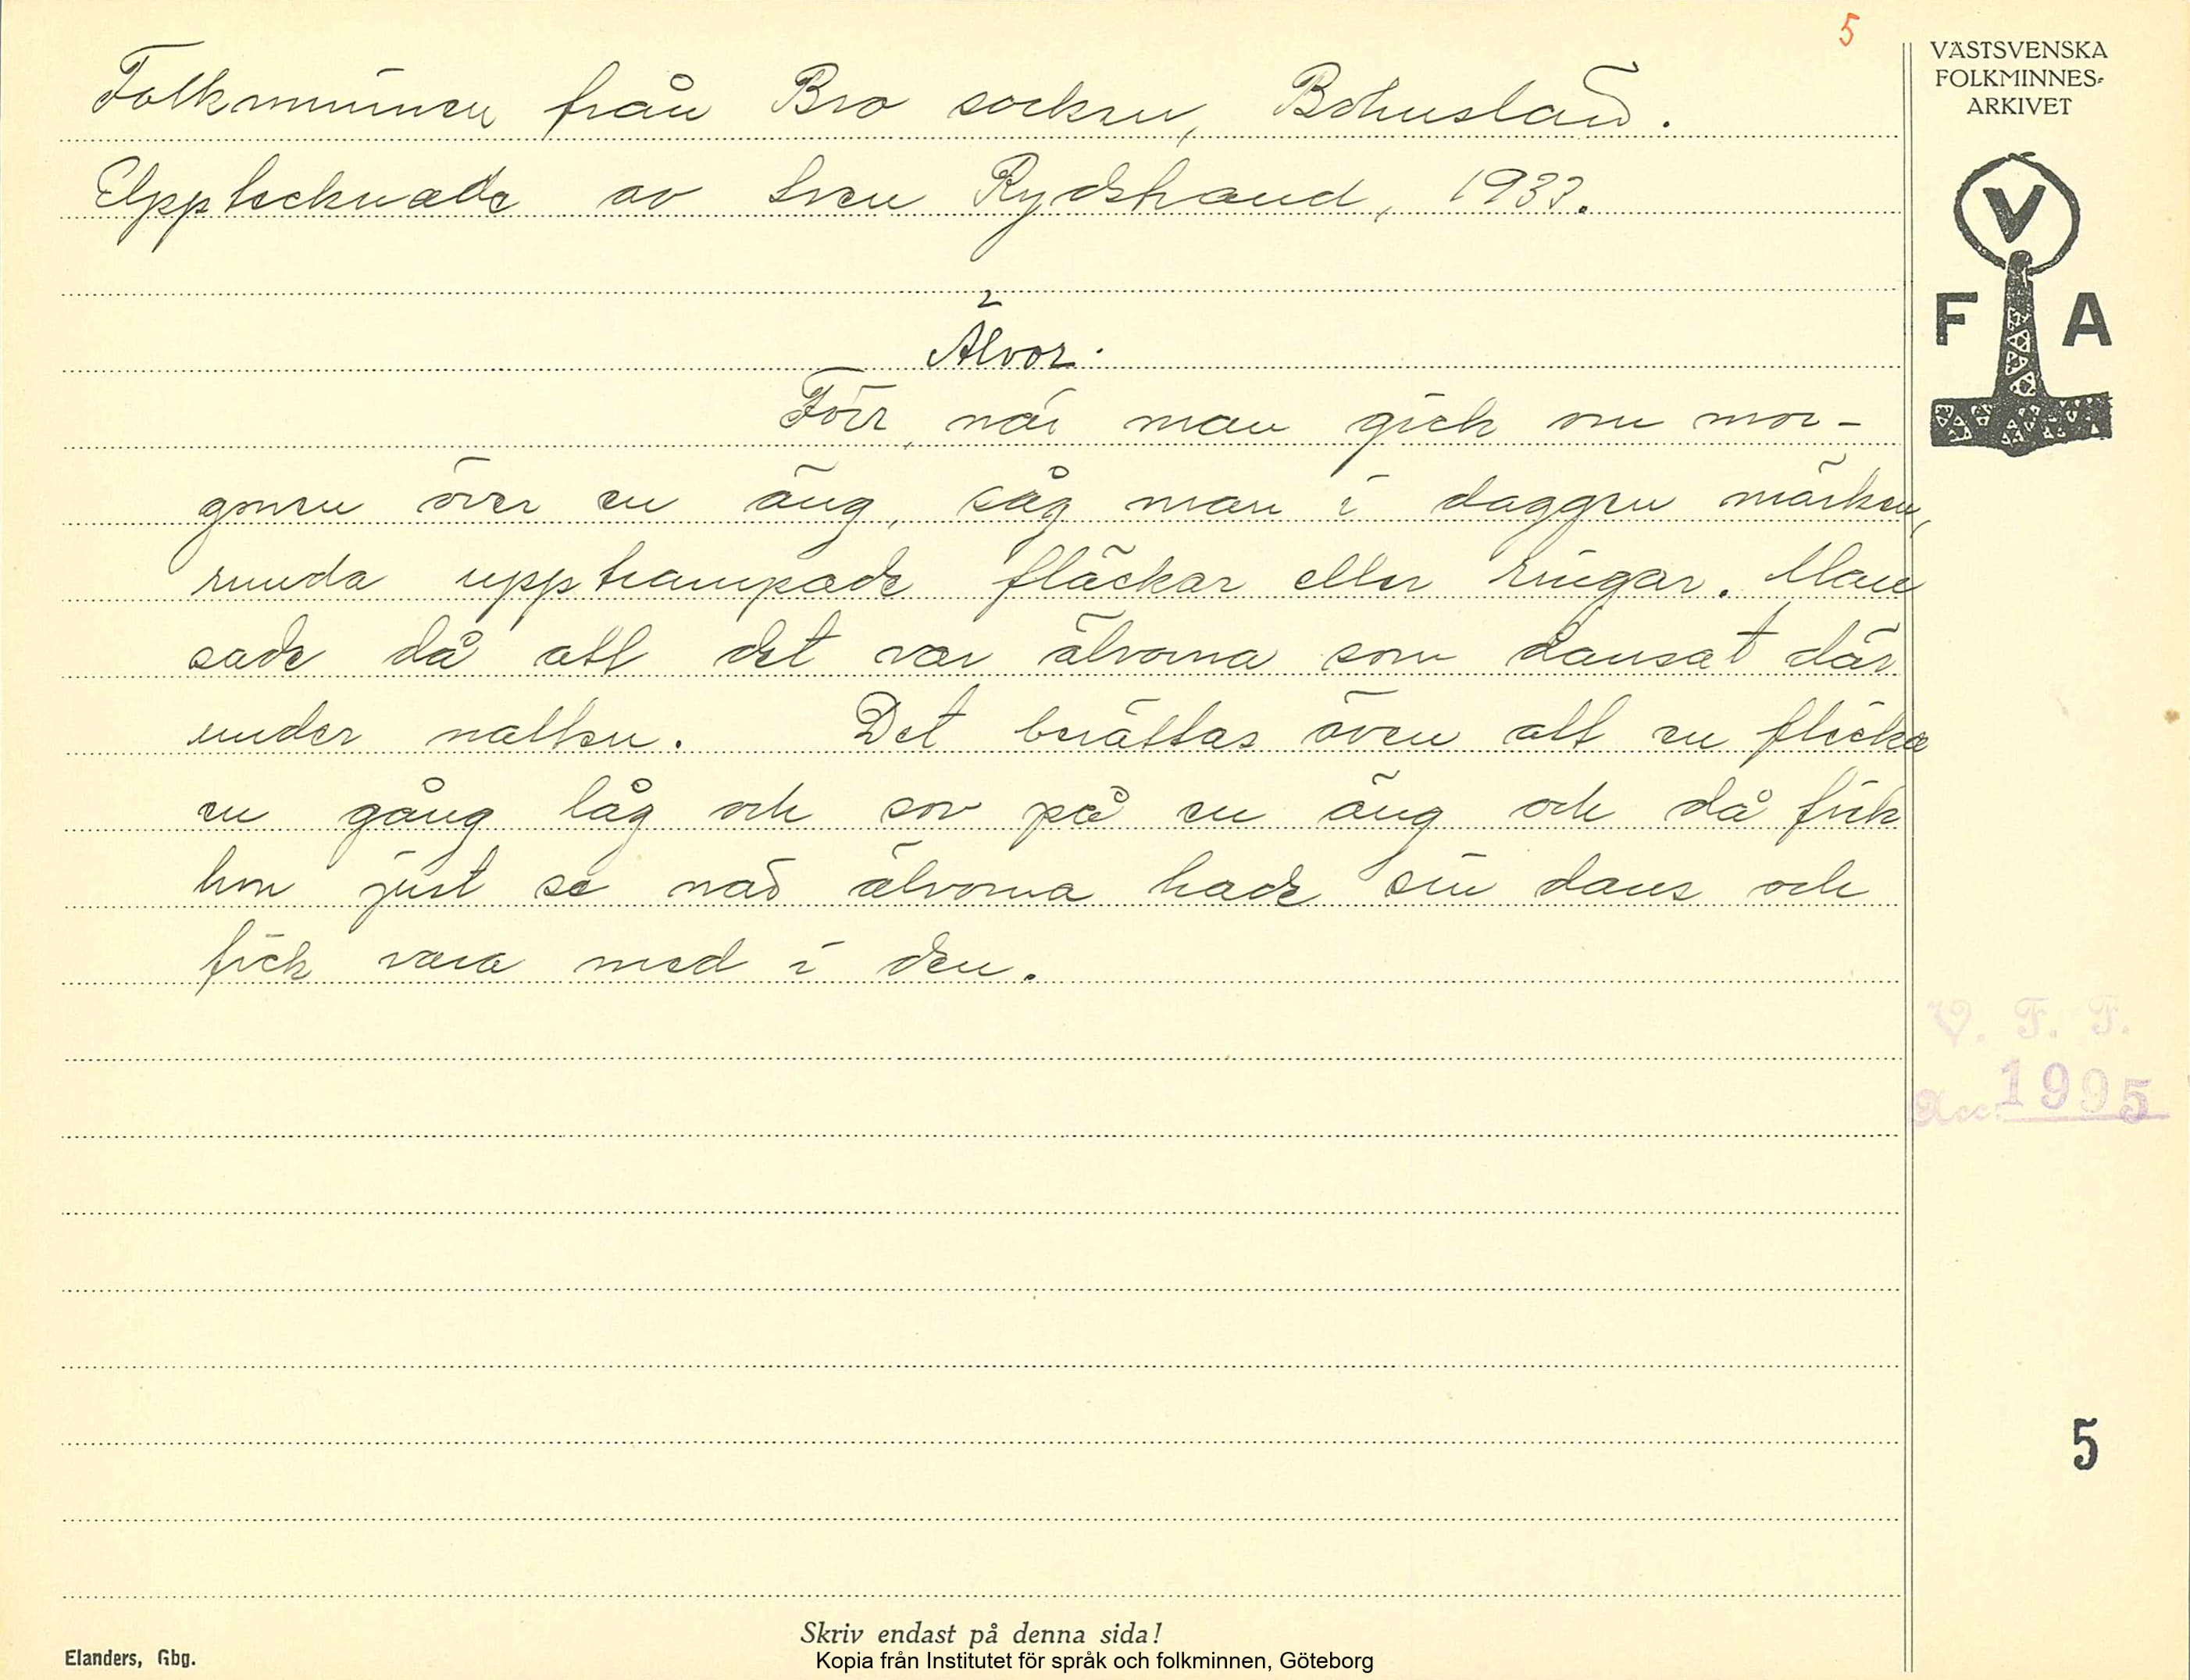 5
Folkminnen från Bro socken, Bohuslän.
Upptecknade av Sven Rydstrand, 1933.
Älvor.
Förr, när man gick om mor-
gonen över en äng, såg man i daggen märken,
runda upptrampade fläckar eller ringar. Man
sade då att det var älvorna som dansat där
under natten. Det berättas även att en flicka
en gång låg och sov på en äng och då fick
hon just se vad älvorna hade sin dans och
fick vara med i den.
VÄSTSVENSKA
FOLKMINNES-
ARKIVET
V
F A
V. F. F.
Acc. 1995
5
Skriv endast på denna sida!
Elanders, Gbg.
Kopia från Institutet för språk och folkminnen, Göteborg